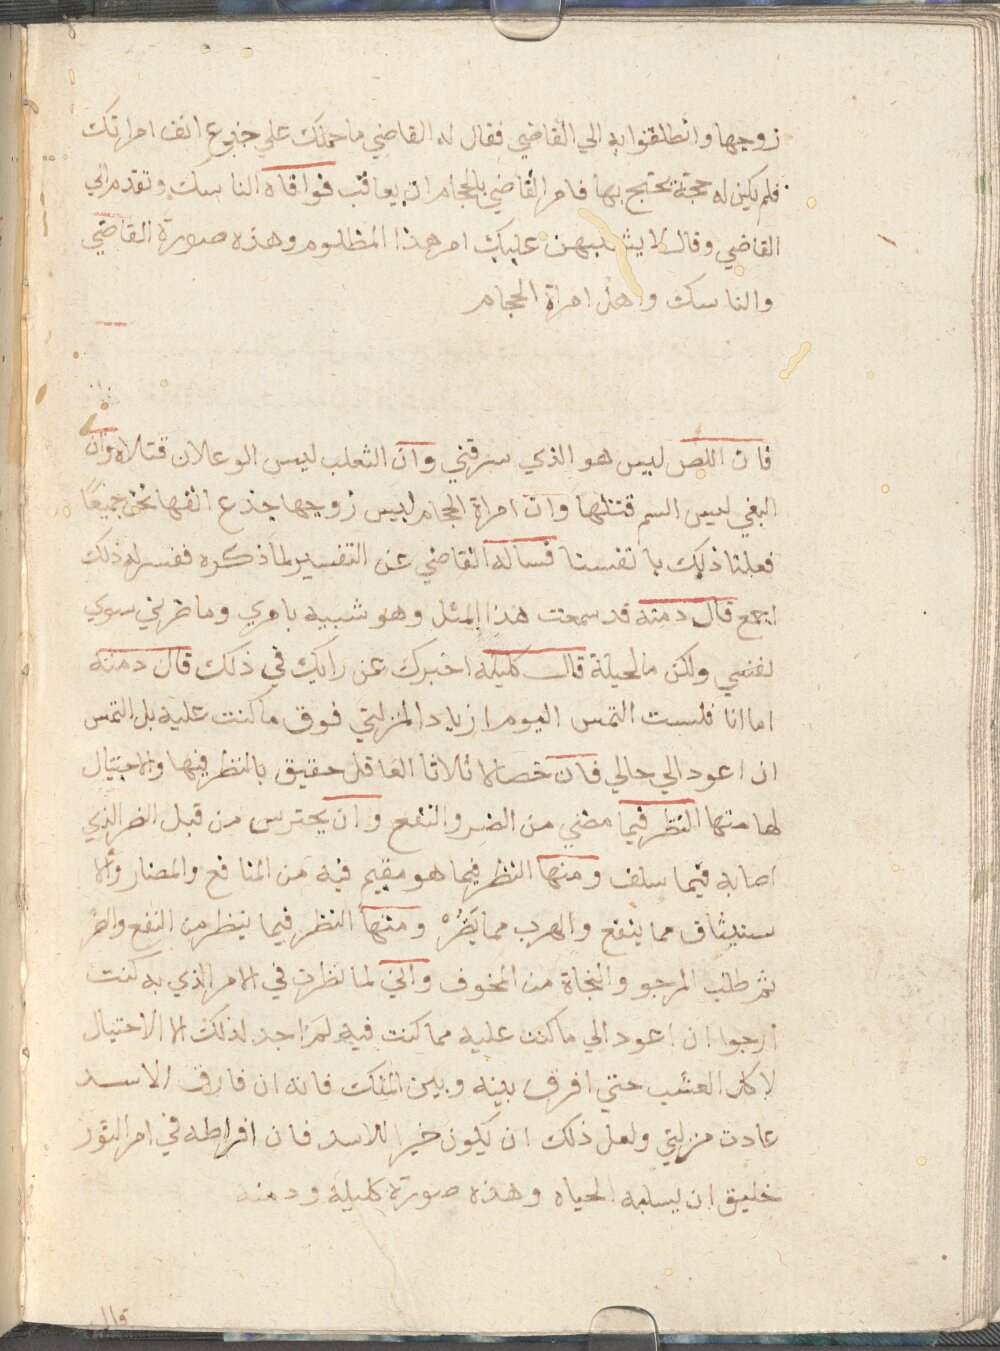 زوجها وانطلقوا به الي القاضي فقال له القاضي ما حملك علي جذع انف امراتك
فلم يكن له حجة يحتج بها فامر القاضي بالحجام ان يعاقب فوافاه الناسك وتقدم الي
القاضي وقال لا يشتبهن عليك امر هذا المظلوم وهذه صورة القاضي
والناسك واهل امراة الحجام
فان اللص ليس هو الذي سرقني وان الثعلب ليس الوعلان قتلاه وان
البغي ليس السم قتلها وان امراة الحجام ليس زوجها جذع انفها نحن جميعا
فعلنا ذلك بانفسنا فساله القاضي عن التفسير لما ذكره ففسر له ذلك
اجمع قال دمنه قد سمعت هذا المثل وهو شبيه بامري وما ضرني سوي
نفسي ولكن ما الحيلة قال كليله اخبرك عن رايك في ذلك قال دمنه
اما انا فلست التمس اليوم ازياد المنزلتي فوق ما كنت عليه بل التمس
ان اعود الي حالي فان خصالا ثلاثا العاقل حقيق بالنظر فيها والاحتيال
لها منها النظر فيما مضي من الضر والنفع وان يحترس من قبل الضر الذي
اصابه فيما سلف ومنها النظر فيما هو مقيم فيه من المنافع والمضار والا
ستيثاق مما ينفع والهرب مما يضره ومنها النظر فيما ينظر من النفع والضر
ثم طلب المرجو والنجاة من المخوف واني لما نظرت في الامر الذي به كنت
ارجوا ان اعود الي ما كنت عليه مما كنت فيه لم اجد لذلك الا الاحتيال
لاكل العشب حتي افرق بينه وبين الملك فانه ان فارق الاسد
عادت منزلتي ولعل ذلك ان يكون خيرا للاسد فان افراطه في امر الثور
خليق ان يسلبه الحياه وهذه صورة كليلة ودمنه
قال